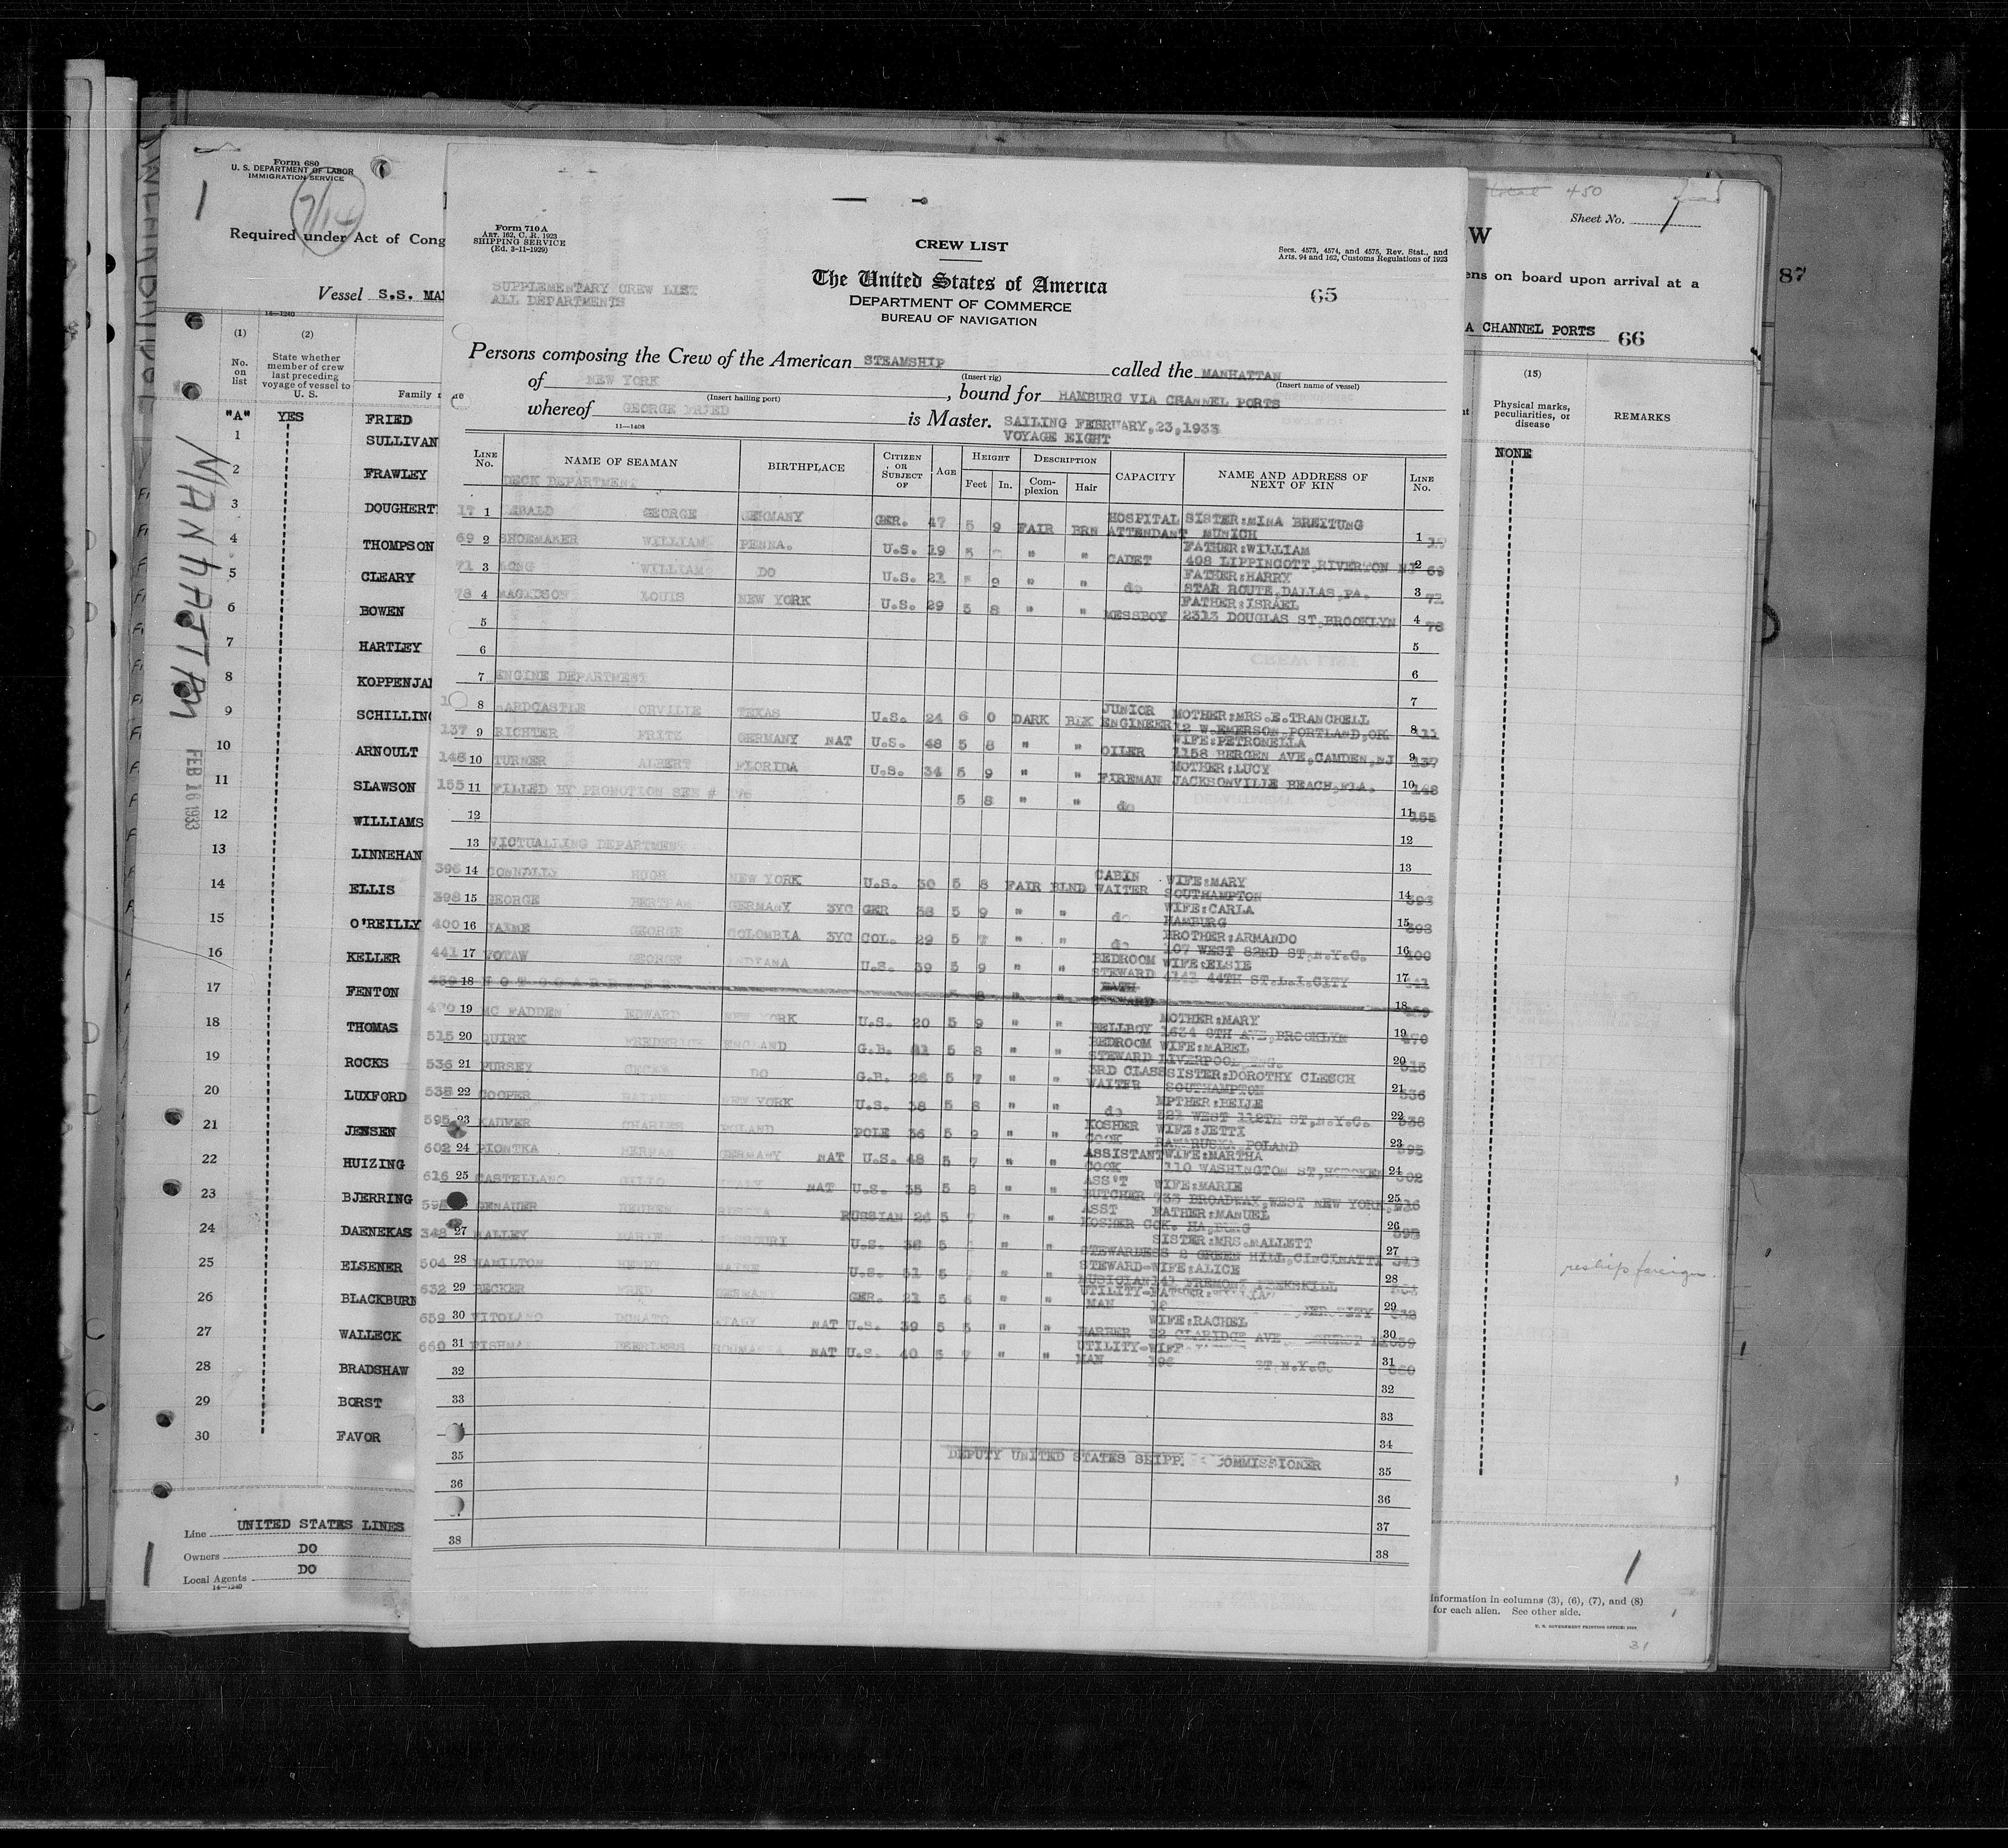 Form 680
U. S. DEPARTMENT OF LABOR
IMMIGRATION SERVICE
Required under Act of Cong
Vessel S.S. MA
14—1240
(1) (2)
No. on list
State whether member of crew last preceding voyage of vessel to U. S.
Family
"A" YES FRIED
1 SULLIVAN
2 FRAWLEY
3 DOUGHERT
4 THOMPSON
5 CLEARY
6 BOWEN
7 HARTLEY
8 KOPPENJA
9 SCHILLING
10 ARNOULT
11 SLAWSON
12 WILLIAMS
13 LINNEHAN
14 ELLIS
15 O'REILLY
16 KELLER
17 FENTON
18 THOMAS
19 ROCKS
20 LUXFORD
21 JENSEN
22 HUIZING
23 BJERRING
24 DAENEKAS
25 ELSENER
26 BLACKBURN
27 WALLECK
28 BRADSHAW
29 BORST
30 FAVOR
MANHATTAN
FEB 16 1933
Line UNITED STATES LINES
Owners DO
Local Agents DO
14—1240
Form 710 A
ART. 162, C. R. 1923
SHIPPING SERVICE
(Ed. 3-11-1929)
SUPPLEMENTARY CREW LIST
ALL DEPARTMENTS
CREW LIST
The United States of America
DEPARTMENT OF COMMERCE
BUREAU OF NAVIGATION
Secs. 4573, 4574, and 4575, Rev. Stat., and
Arts. 94 and 162, Customs Regulations of 1923
65
Persons composing the Crew of the American STEAMSHIP called the MANHATTAN
(Insert rig) (Insert name of vessel)
of NEW YORK, bound for HAMBURG VIA CHANNEL PORTS
(Insert hailing port)
whereof GEORGE FRIED is Master. SAILING FEBRUARY,23,1933
11—1408
VOYAGE EIGHT
LINE No. NAME OF SEAMAN BIRTHPLACE CITIZEN OR SUBJECT OF AGE HEIGHT Feet In. DESCRIPTION Complexion Hair CAPACITY NAME AND ADDRESS OF NEXT OF KIN LINE No.
DECK DEPARTMENT
17 1 GEORGE GERMANY GER. 47 5 9 FAIR BRN HOSPITAL ATTENDANT SISTER:MINA BREITUNG MUNICH 1
69 2 SHOEMAKER WILLIAM PENNA. U.S. 19 5 " " CADET FATHER:WILLIAM 408 LIPPINCOTT,RIVERTON NJ 2 69
71 3 LONG WILLIAM DO U.S. 21 " 9 " " do FATHER:HARRY STAR ROUTE,DALLAS,PA. 3 71
78 4 MAGIDSON LOUIS NEW YORK U.S. 29 5 8 " " MESSBOY FATHER:ISRAEL 2313 DOUGLAS ST,BROOKLYN 4 78
5 5
6 6
7 ENGINE DEPARTMENT 7
8 HARDCASTLE ORVILLE TEXAS U.S. 24 6 0 DARK BLK JUNIOR ENGINEER MOTHER:MRS.E.TRANCHELL 12 W.EMERSON,PORTLAND,OR. 8 111
137 9 RICHTER FRITZ GERMANY NAT U.S. 48 5 8 " " OILER WIFE:PETRONELLA 1158 BERGEN AVE,CAMDEN,NJ 9 137
148 10 TURNER ALBERT FLORIDA U.S. 34 5 9 " " FIREMAN MOTHER:LUCY JACKSONVILLE BEACH,FLA. 10 148
155 11 FILLED BY PROMOTION SEE # 176 5 8 " " do 11 155
12 12
13 VICTUALLING DEPARTMENT 13
14 CONNALLY HUGH NEW YORK U.S. 30 5 8 FAIR BLND CABIN WAITER WIFE:MARY SOUTHAMPTON 14
398 15 GEORGE BERTRAM GERMANY 3YC GER 38 5 9 " " do WIFE:CARLA HAMBURG 15 398
400 16 JAIME GEORGE COLOMBIA 3YC COL. 29 5 7 " " do BROTHER:ARMANDO 107 WEST 82ND ST,N.Y.C. 16 400
441 17 VOTAW GEORGE INDIANA U.S. 39 5 9 " " BEDROOM STEWARD WIFE:ELSIE 4143 44TH ST.L.I.CITY 17 441
18 5 8 " " BATH STEWARD 18
470 19 MC FADDEN EDWARD NEW YORK U.S. 20 5 9 " " BELLBOY MOTHER:MARY 1634 8TH AVE,BROOKLYN 19 470
515 20 QUIRK FREDERICK ENGLAND G.B. 41 5 8 " " BEDROOM STEWARD WIFE:MABEL LIVERPOOL,ENG. 20 515
536 21 PURSEY DO G.B. 26 5 7 " " 3RD CLASS WAITER SISTER:DOROTHY CLESCH SOUTHAMPTON 21 536
538 22 COOPER RALPH NEW YORK U.S. 38 5 8 " " do MPTHER:BELLE 521 WEST 112TH ST,N.Y.C. 22 538
595 23 CHARLES POLAND POLE 36 5 9 " " KOSHER COOK WIFE:JETTI POLAND 23 595
602 24 PIONTKA HERMAN GERMANY NAT U.S. 48 5 7 " " ASSISTANT COOK WIFE:MARTHA 110 WASHINGTON ST,HOBOKEN 24 602
616 25 CASTELLANO ITALY NAT U.S. 35 5 8 " " ASS'T BUTCHER WIFE:MARIE 733 BROADWAY,WEST NEW YORK, 25 616
GENAUER REUBEN RUSSIA RUSSIAN 26 5 7 " " ASST KOSHER COK. FATHER:MANUEL 26
348 27 MALLEY MARIE MISSOURI U.S. 38 5 " " STEWARDESS SISTER:MRS.MALLETT 2 GREEN HILL,CINCINATTI 27
504 28 HAMILTON HENRY MAINE U.S. 31 5 " " STEWARD-MUSICIAN WIFE:ALICE 141 FREMONT PEEKSKILL 28
632 29 BECKER FRED GERMANY GER. 21 5 6 " " UTILITY-MAN FATHER:WILLIAM 29 632
659 30 VITOLANO DONATO ITALY NAT U.S. 39 5 5 " " BARBER WIFE:RACHEL 32 CLARIDGE AVE 30 659
660 31 FISHMAN PEERLESS ROUMANIA NAT U.S. 40 5 7 " " UTILITY-MAN WIFE ST N.Y.C. 31 660
32 32
33 33
34
35 DEPUTY UNITED STATES SHIPP. COMMISSIONER 35
36 36
37
38 38
total 450
Sheet No. 1
W
ens on board upon arrival at a
87
A CHANNEL PORTS 66
(15)
Physical marks, peculiarities, or disease
REMARKS
NONE
reship foreign.
1
information in columns (3), (6), (7), and (8)
for each alien. See other side.
U. S. GOVERNMENT PRINTING OFFICE
31